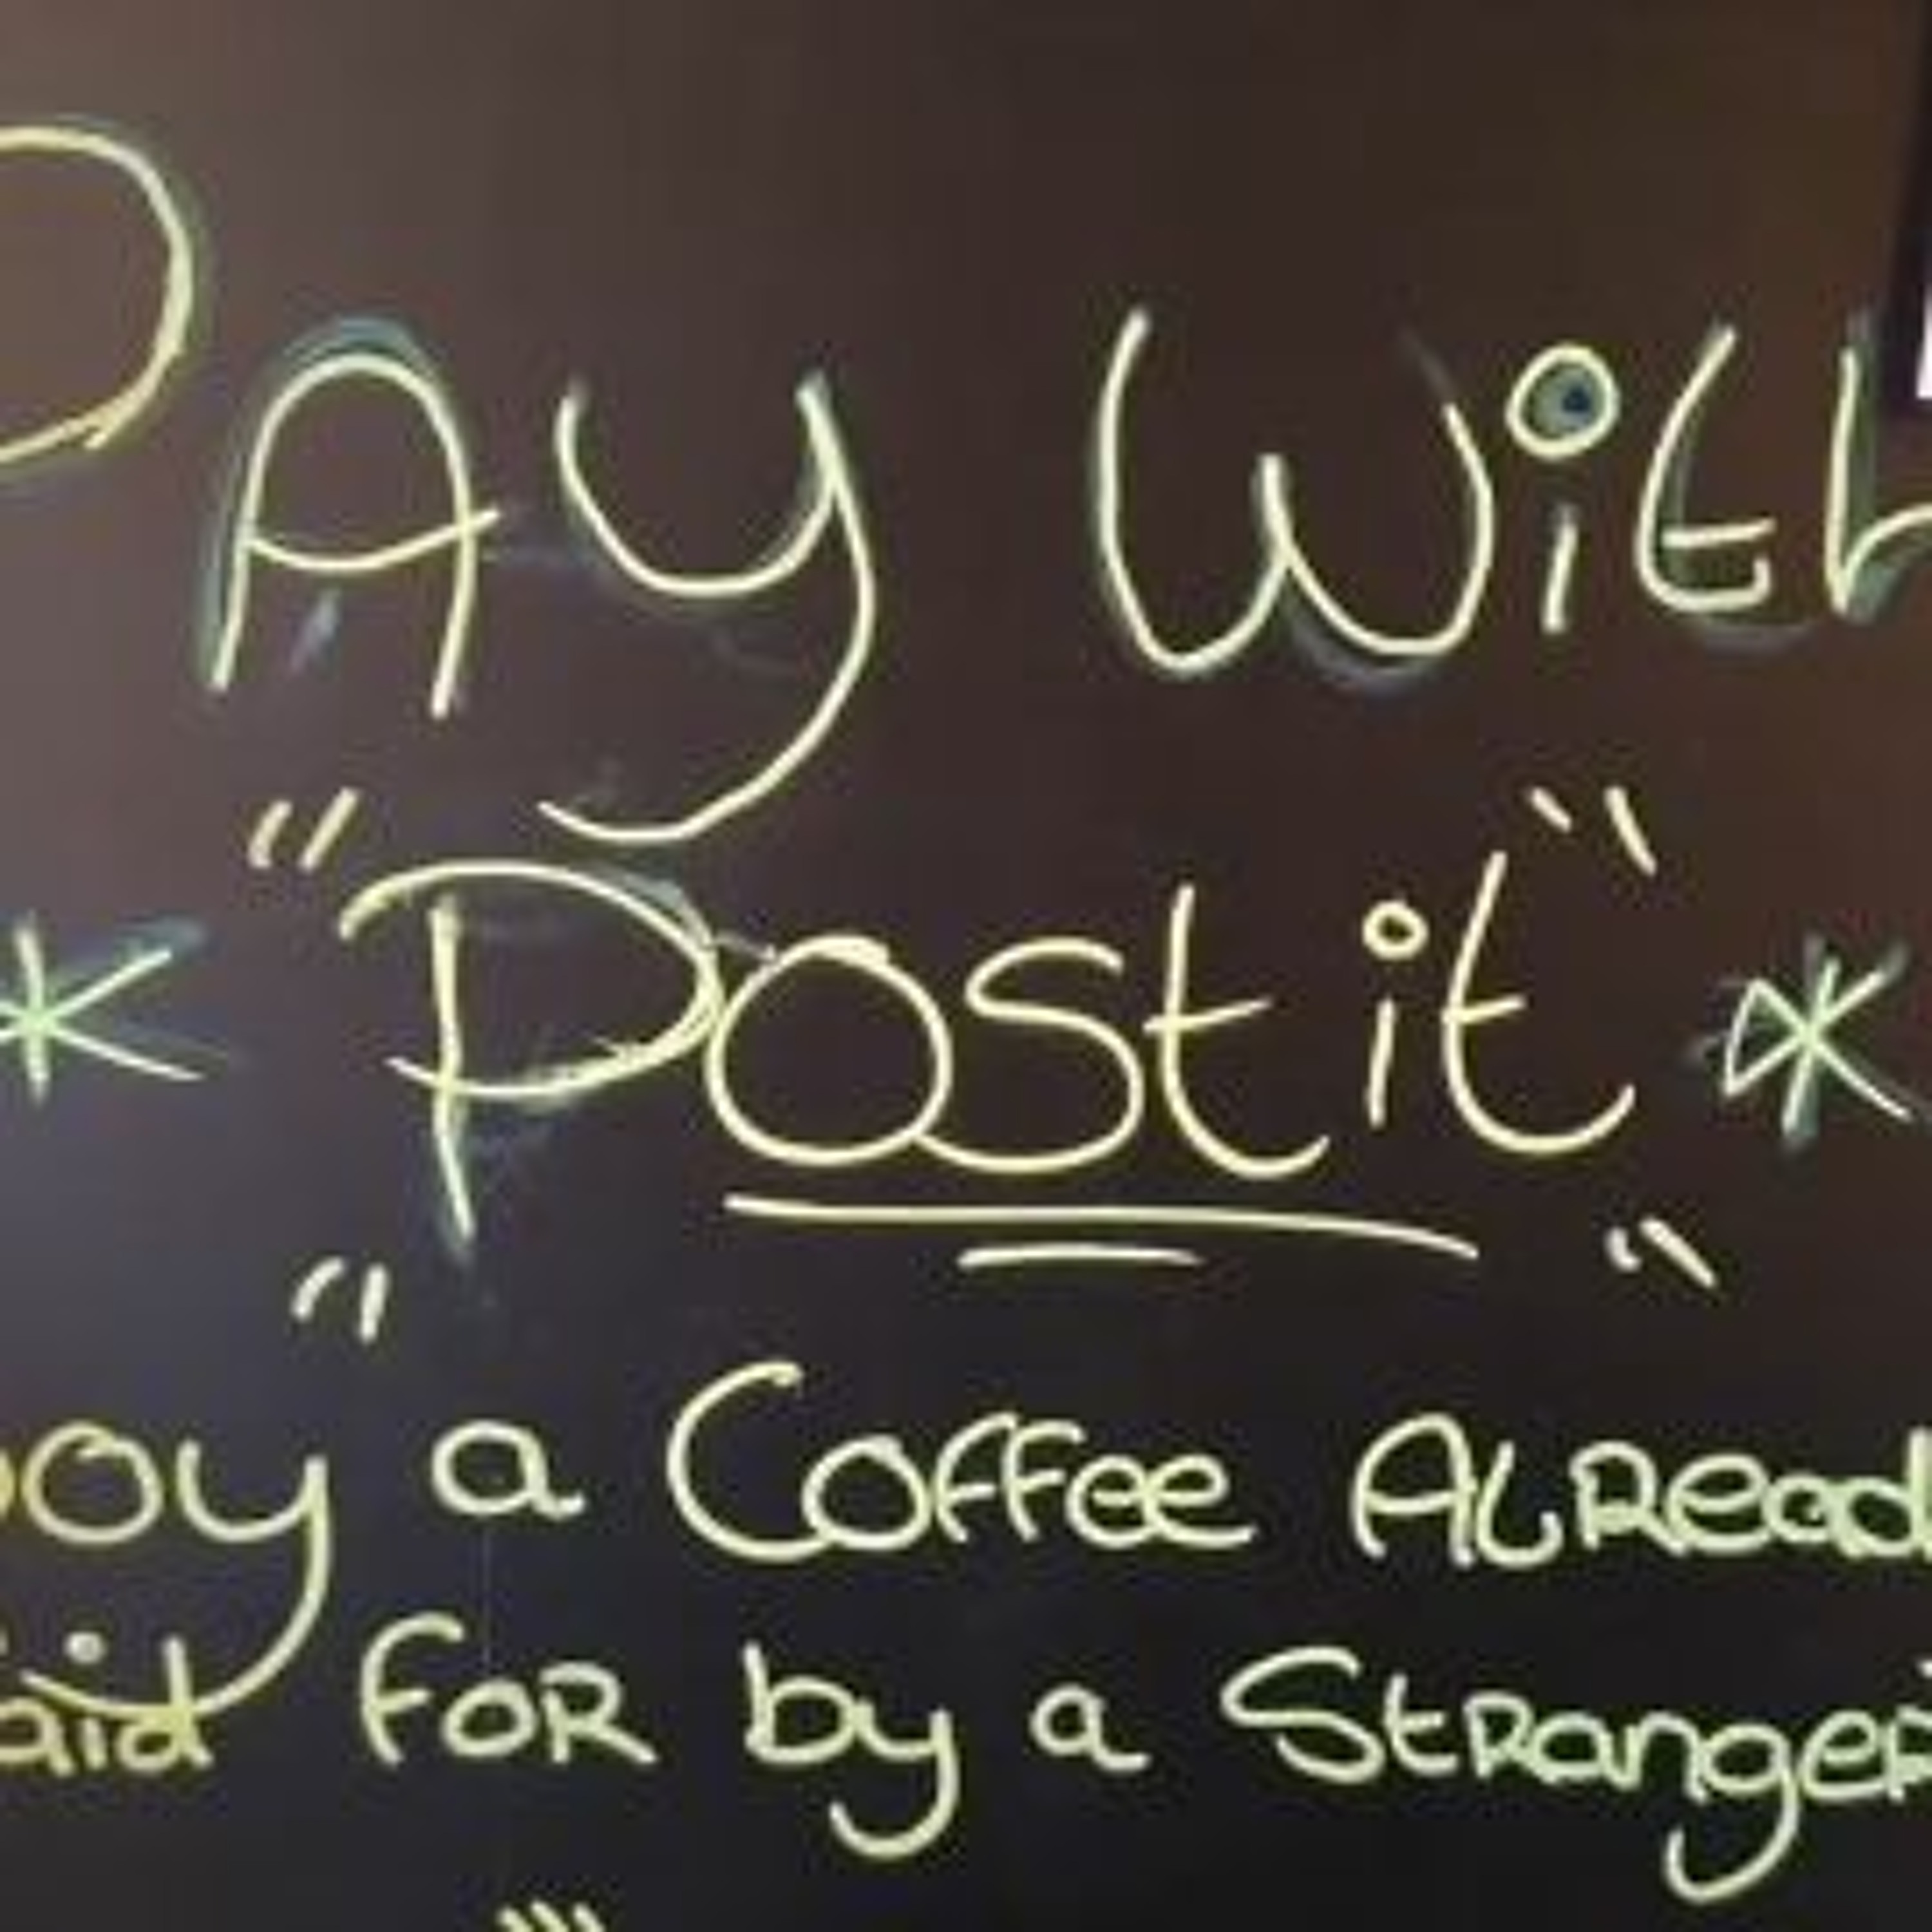 PAY With
"Postit"
" "
joy a Coffee Already
Paid for by a Stranger